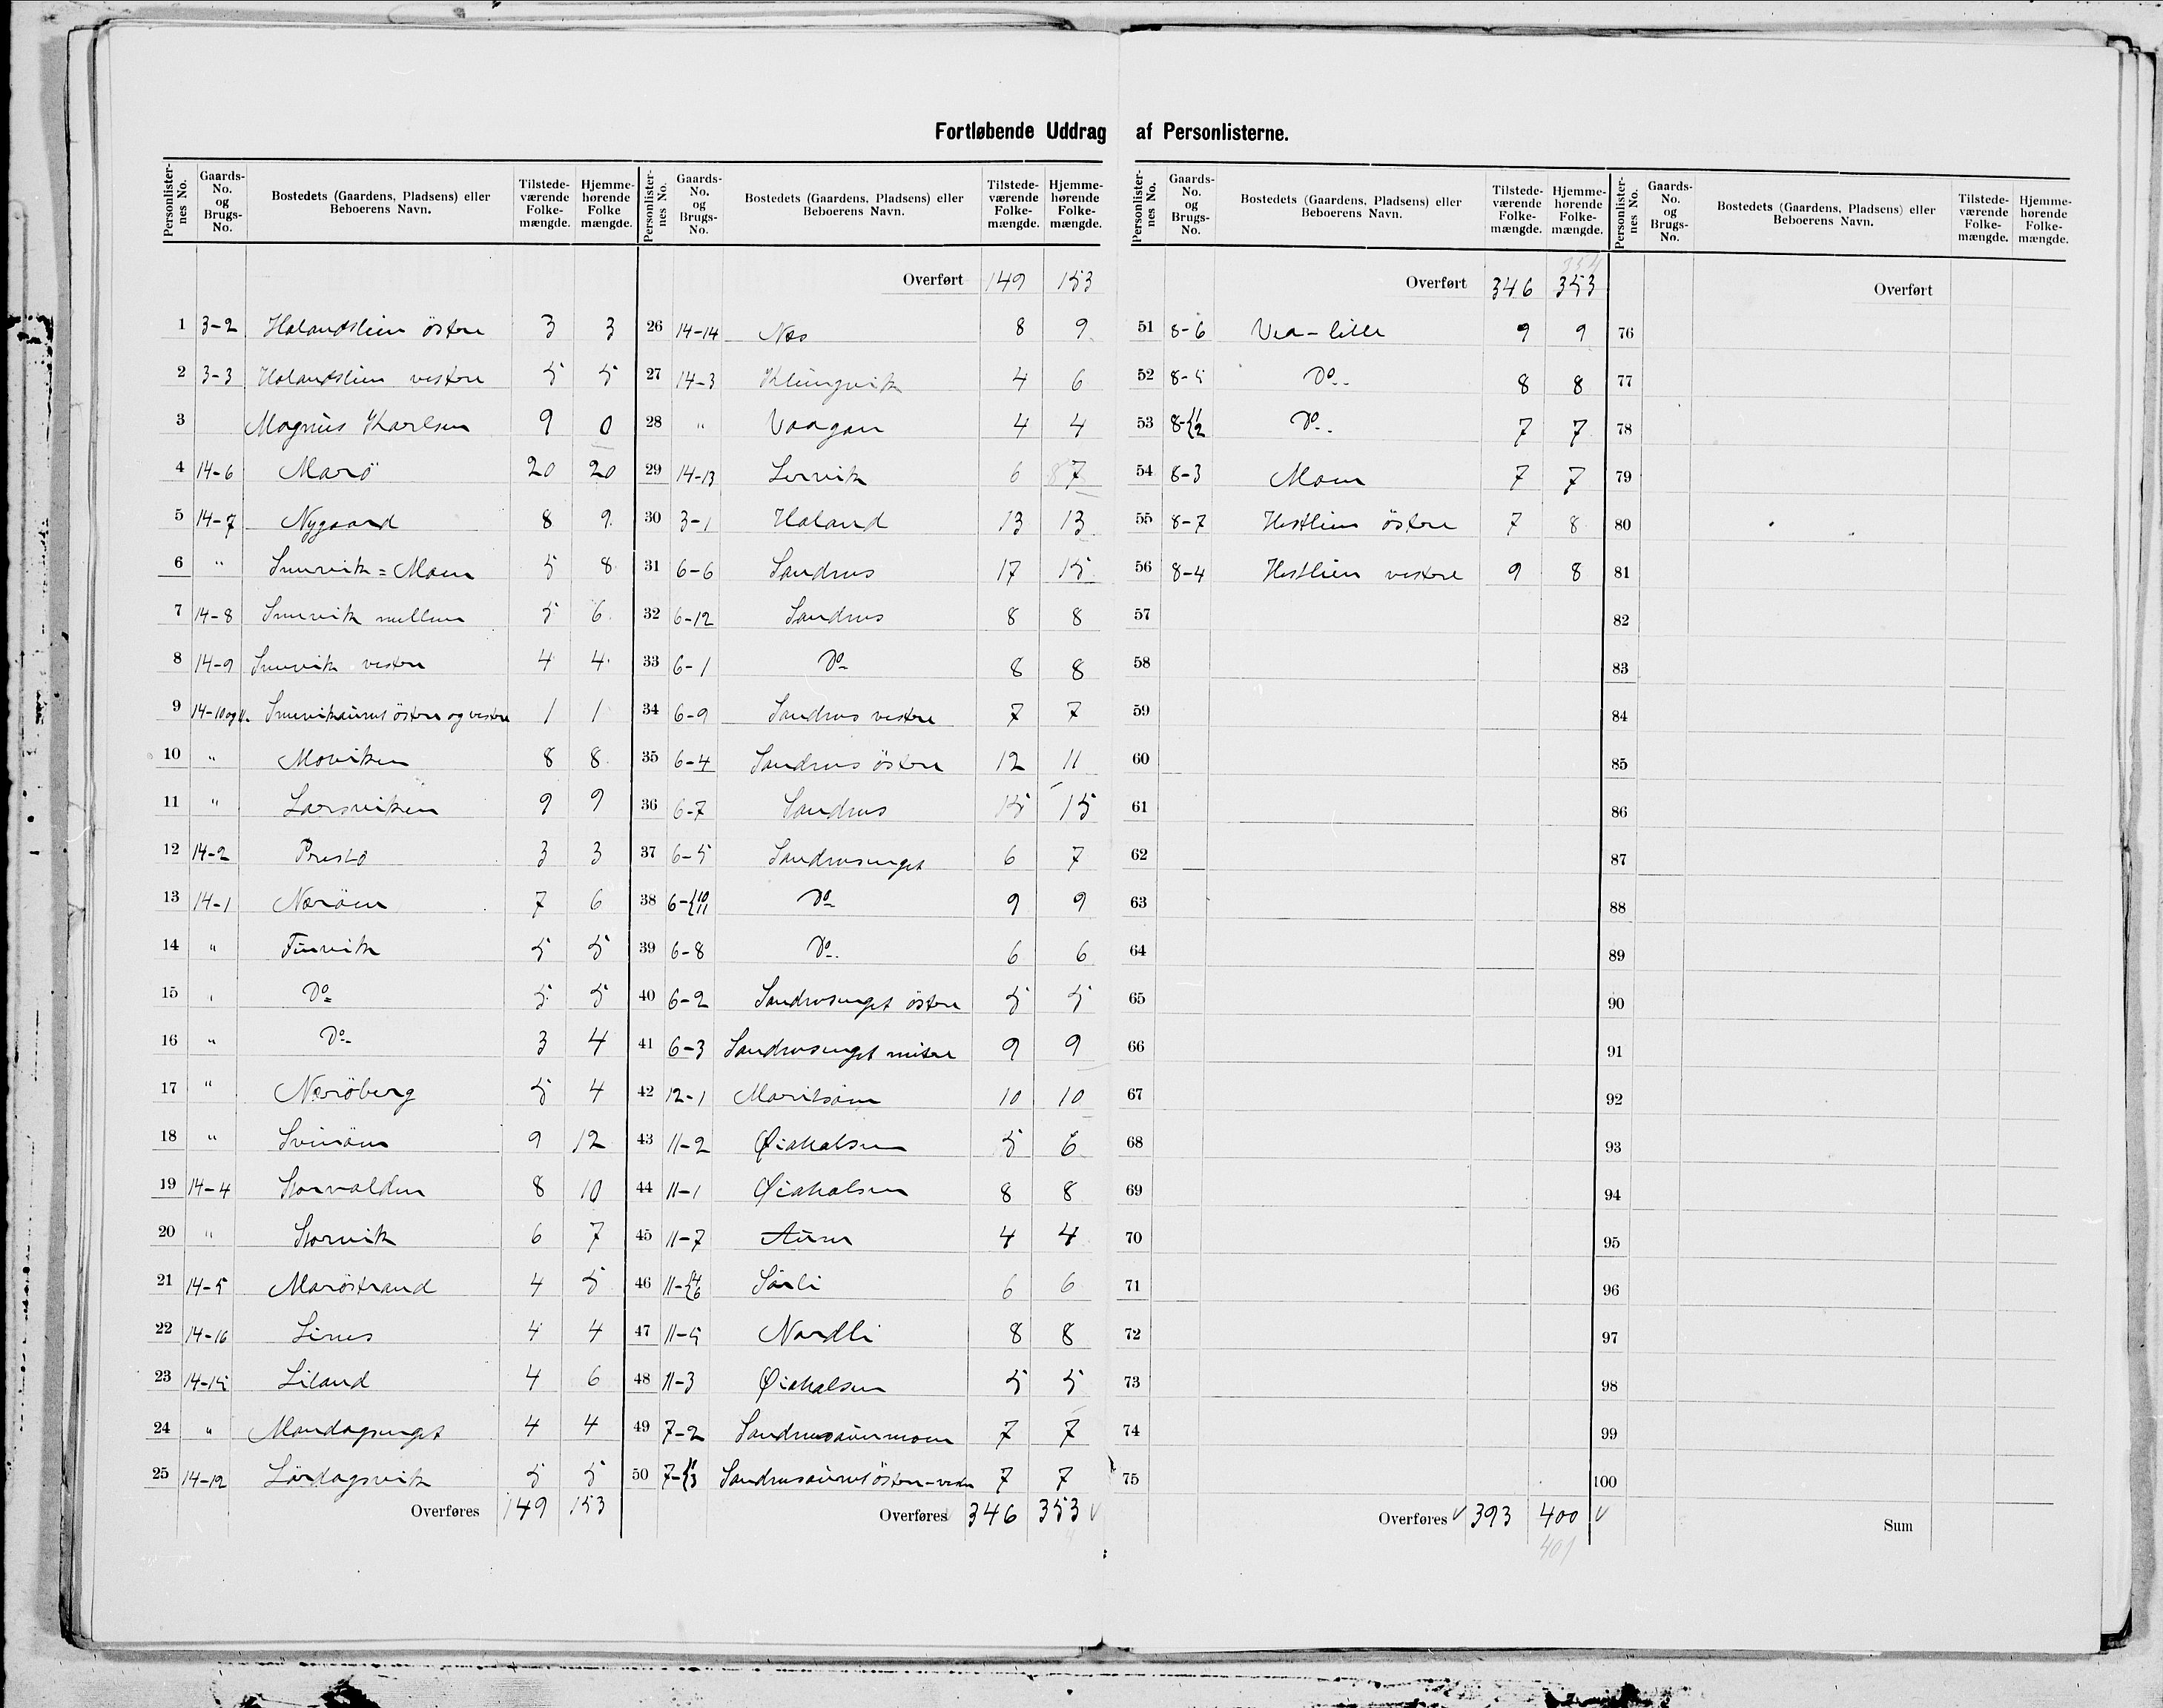 Fortløbende Uddrag af Personlisterne.
Personlister-nes No. Gaards-No. og Brugs-No. Bostedets (Gaardens, Pladsens) eller Beboerens Navn. Tilstede-værende Folke-mængde. Hjemme-hørende Folke mængde.
1 3-2 Halandslien östre 3 3
2 3-3 Halandslien vestre 5 5
3 Magnus Karlsen 9 0
4 14-6 Marö 20 20
5 14-7 Nygaard 8 9
6 " Smervik = Moen 5 8
7 14-8 Smervik mellem 5 6
8 14-9 Smervik vestre 4 4
9 14-10 og 11. östre og vestre 1 1
10 " Moviken 8 8
11 " Larsviken 9 9
12 14-2 Prestö 3 3
13 14-1 Naröen 7 6
14 " Finvik 5 5
15 " Do 5 5
16 " Do 3 4
17 " Naröberg 5 4
18 " Svinöen 9 12
19 14-4 Storvalden 8 10
20 " Storvik 6 7
21 14-5 Maröstrand 4 5
22 14-16 Lines 4 4
23 14-15 Liland 4 6
24 " Mandagsenget 4 4
25 14-12 Lördagsvik 5 5
Overføres 149 153
Personlister-nes No. Gaards-No. og Brugs-No. Bostedets (Gaardens, Pladsens) eller Beboerens Navn. Tilstede-værende Folke-mængde. Hjemme-hørende Folke-mængde.
Overført 149 153
26 14-14 Nes 8 9
27 14-3 Klungvik 4 6
28 " Vaagan 4 4
29 14-13 Lervik 6 7
30 3-1 Haland 13 13
31 6-6 Sandnes 17 15
32 6-12 Sandnes 8 8
33 6-1 Do 8 8
34 6-9 Sandnes vestre 7 7
35 6-4 Sandnes östre 12 11
36 6-7 Sandnes 15 15
37 6-5 Sandnesenget 6 7
38 6-{10 11 Do 9 9
39 6-8 Do. 6 6
40 6-2 Sandnesenget östre 5 5
41 6-3 Sandnesenget mitre 9 9
42 12-1 10 10
43 11-2 Øiahalsen 5 6
44 11-1 Øiahalsen 8 8
45 11-7 Auren 4 4
46 11-{4 6 Sörli 6 6
47 11-5 Nordli 8 8
48 11-3 Øiahalsen 5 5
49 7-2 Sandnesauremoen 7 7
50 7-{1 3 östre - vestre 7 7
Overføres 346 353 v
Personlister-nes No. Gaards-No. og Brugs-No. Bostedets (Gaardens, Pladsens) eller Beboerens Navn. Tilstede-værende Folke-mængde. Hjemme-hørende Folke-mængde.
354
Overført 346 353
51 8-6 Vea-lille 9 9
52 8-5 Do. 8 8
53 8-{1 2 Do. 7 7
54 8-3 Moen 7 7
55 8-7 Hestlien östre 7 8
56 8-4 Hestlien vestre 9 8
57
58
59
60
61
62
63
64
65
66
67
68
69
70
71
72
73
74
75
Overføres v 393 400 v
401
Personlister-nes No. Gaards-No. og Brugs-No. Bostedets (Gaardens, Pladsens) eller Beboerens Navn. Tilstede-værende Folke-mængde. Hjemme-hørende Folke-mængde.
Overført
76
77
78
79
80
81
82
83
84
85
86
87
88
89
90
91
92
93
94
95
96
97
98
99
100
Sum